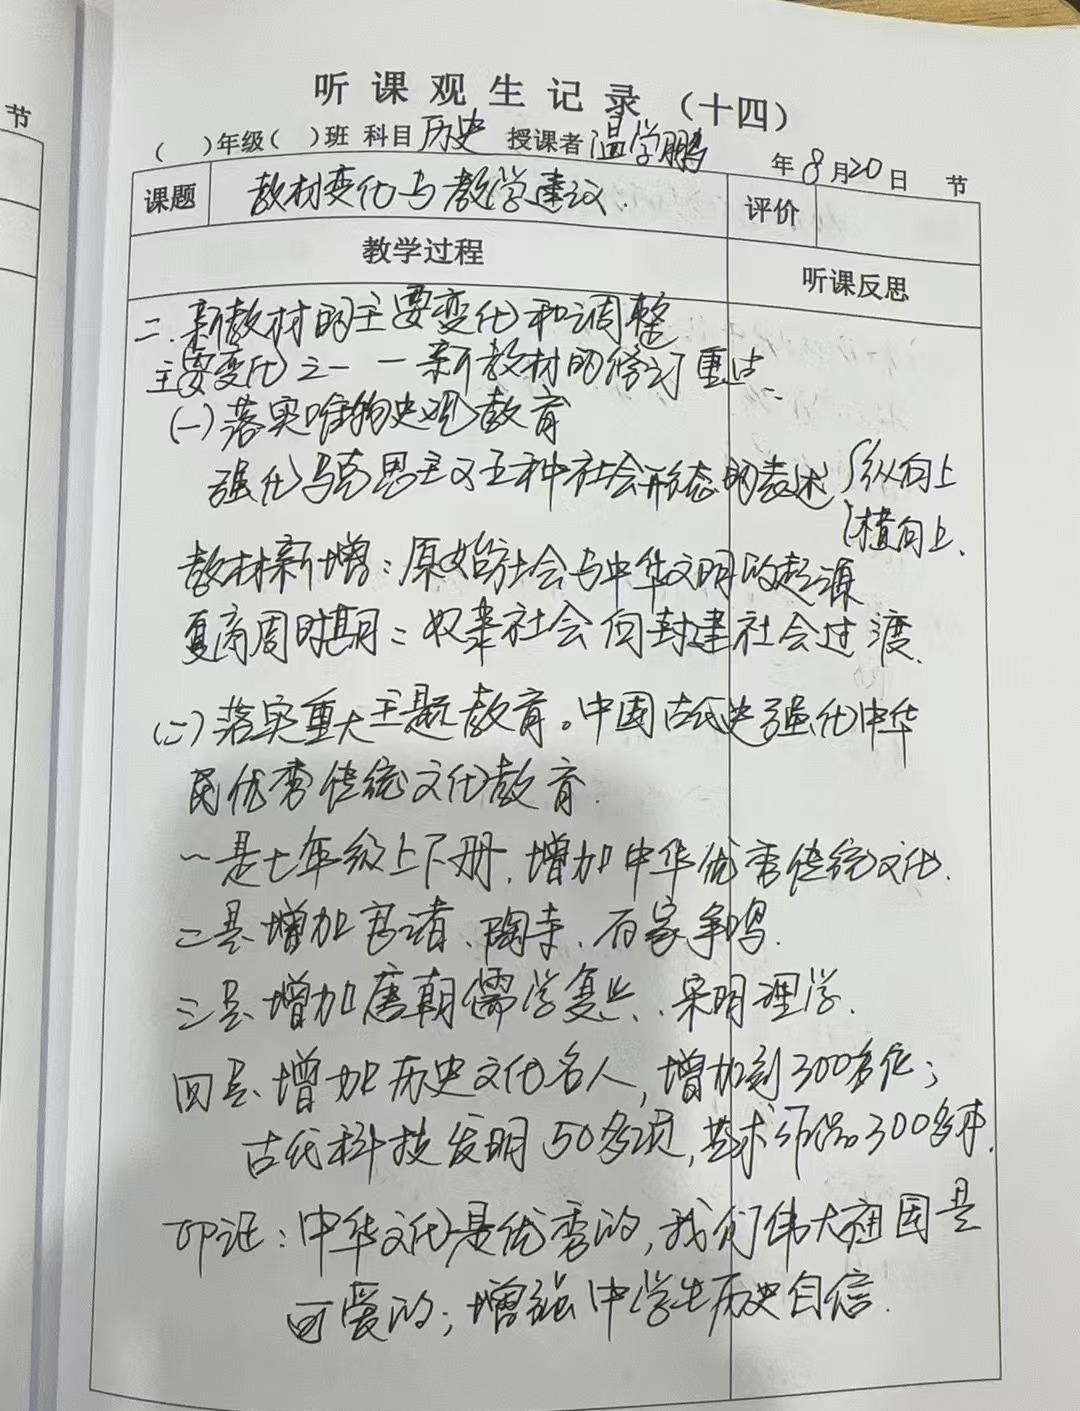 节
听课观生记录（十四）
（ ）年级（ ）班 科目 历史 授课者 温学鹏 年 8月20日 节
课题 教材变化与教学建议. 评价
教学过程 听课反思
二.新教材的主要变化和调整
主要变化之一—新教材的修订重点.
(一)落实唯物史观教育
强化马克思主义五种社会形态的表述 {纵向上
横向上.
教材新增:原始社会与中华文明的起源
夏商周时期:奴隶社会向封建社会过渡.
(二)落实重大主题教育。中国古代史强化中华
民优秀传统文化教育.
一是七年级上下册,增加中华优秀传统文化.
二是增加 陶寺、百家争鸣.
三是增加唐朝儒学复兴、宋明理学.
四是增加历史文化名人,增加到300多位;
古代科技发明50多项,艺术作品300多件.
印证:中华文化是优秀的,我们伟大祖国是
可爱的;增强中学生历史自信.